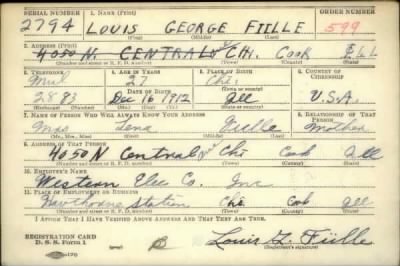 SERIAL NUMBER 1. NAME (Print) ORDER NUMBER
2794 LOUIS GEORGE FIILLE 599
(First) (Middle) (Last)
2. ADDRESS (Print)
4050 N. CENTRAL CHI. COOK ILL
(Number and street or R. F. D. number) (Town) (County) (State)
3. TELEPHONE 4. AGE IN YEARS 5. PLACE OF BIRTH 6. COUNTRY OF CITIZENSHIP
27 Chi.
DATE OF BIRTH
2893 Dec 16 1912 Ill U.S.A.
7. NAME OF PERSON WHO WILL ALWAYS KNOW YOUR ADDRESS 8. RELATIONSHIP OF THAT PERSON
Mrs Lena Fiille Mother
(Mr., Mrs., Miss) (First) (Middle) (Last)
9. ADDRESS OF THAT PERSON
4050 N Central Chi Cook Ill
(Number and street or R. F. D. number) (Town) (County) (State)
10. EMPLOYER'S NAME
Western Elec Co. Inc
11. PLACE OF EMPLOYMENT OR BUSINESS
Hawthorne Station Chi Cook Ill
(Number and street or R. F. D. number) (Town) (County) (State)
I AFFIRM THAT I HAVE VERIFIED ABOVE ANSWERS AND THAT THEY ARE TRUE.
REGISTRATION CARD
D. S. S. Form 1
Louis G. Fiille
(Registrant's signature)